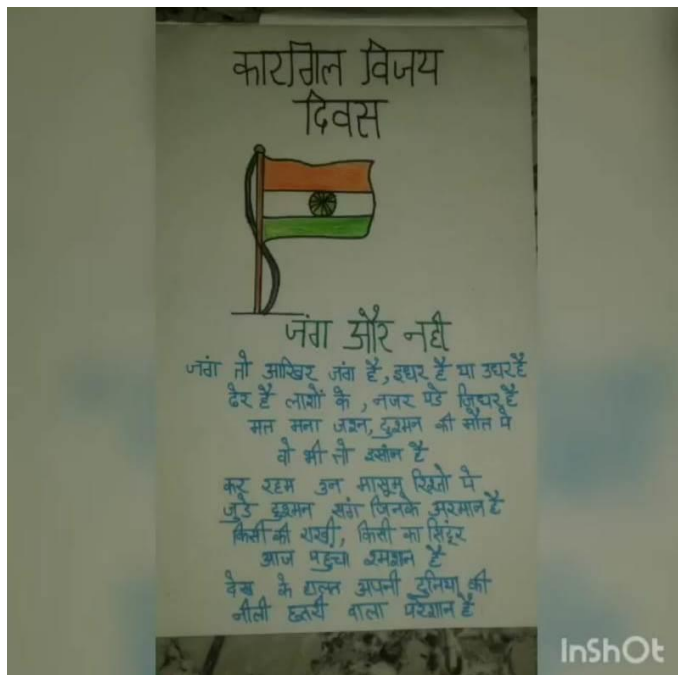 कारगिल विजय
दिवस
जंग और नही
जंग तो आखिर जंग है, इधर है या उधर है
ढेर है लाशों के, नजर पडे जिधर है
मत मना जश्न, दुश्मन की मौत पे
वो भी तो इसांन है
कर रहम उन मासूम रिश्तो पे
जुडे दुश्मन संग जिनके अरमान है
किसी की राखी, किसी का सिंदूर
आज पहुचा श्मशान है
देख के हालत अपनी दुनिया की
नीली छतरी वाला परेशान है
InShOt